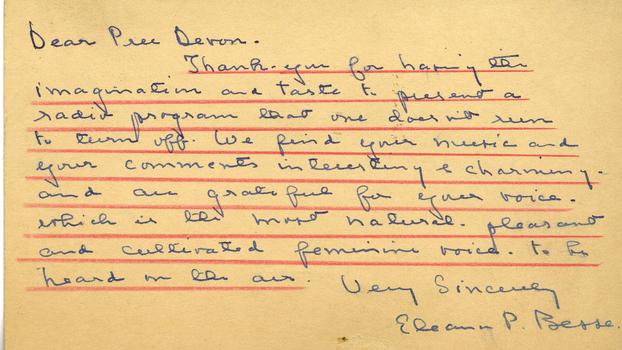 Dear Pru Devon.
Thank-you for having the
imagination and taste to present a
radio program that one doesn't run
to turn off. We find your music and
your comments interesting & charming.
and are grateful for your voice.
which is the most natural. pleasant
and cultivated feminine voice. to be
heard on the air.
Very Sincerely
Eleanor P. Besse.